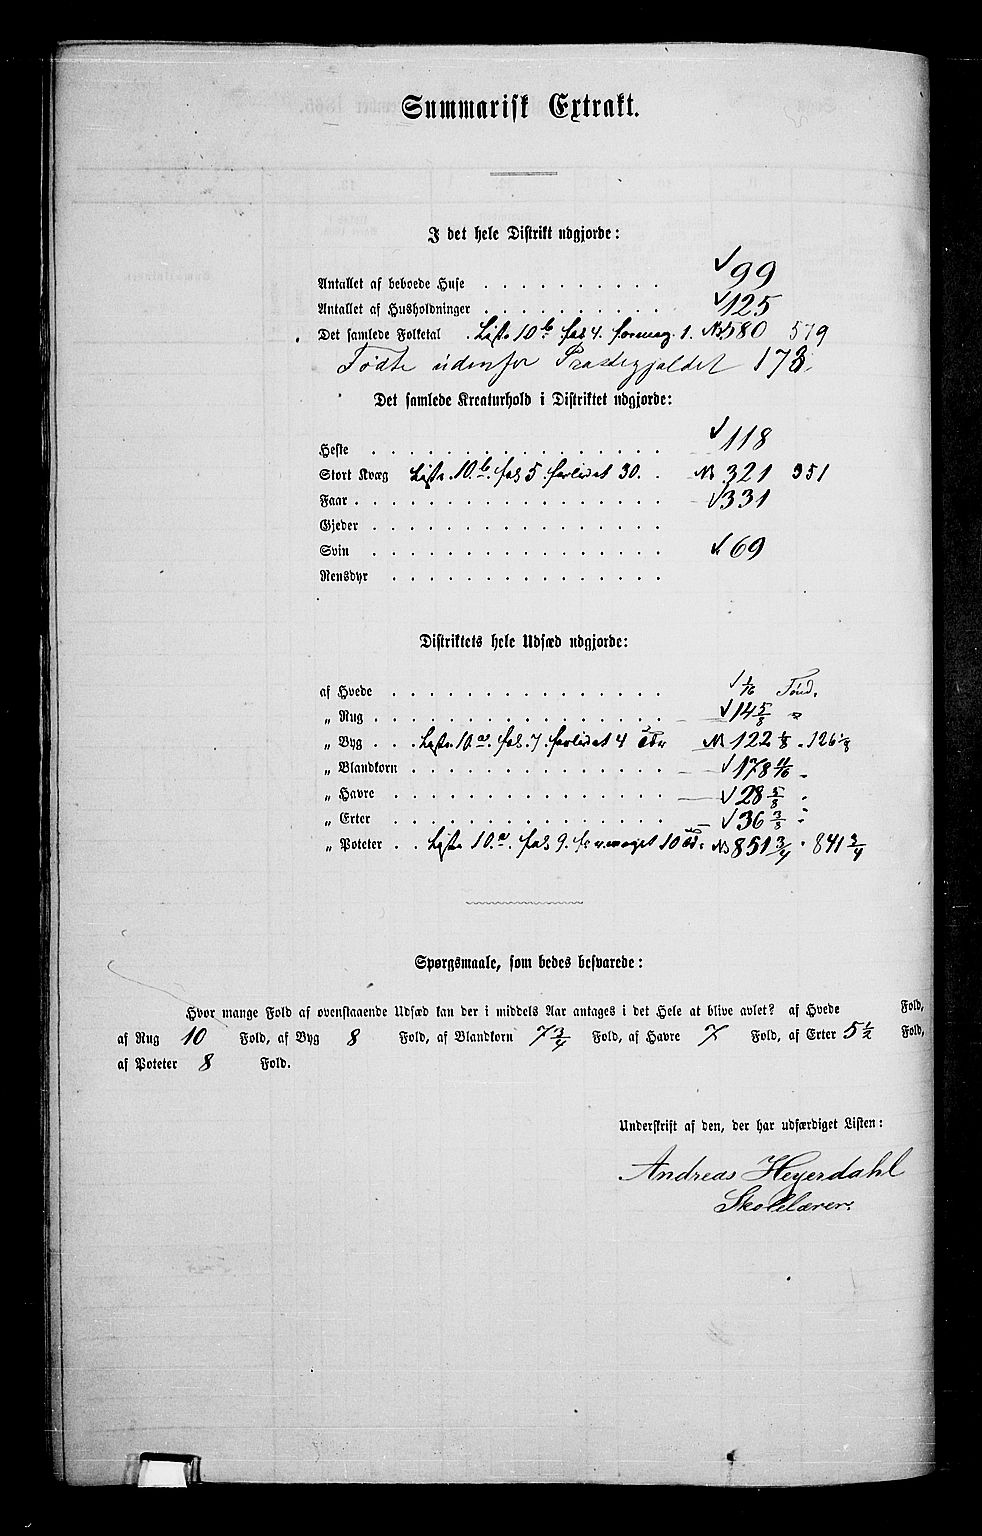 Summarisk Extrakt.
I det hele Distrikt udgjorde:
Antallet af beboede Huse . . . . . . . . . . 99
Antallet af Husholdninger . . . . . . . . . . 125
Det samlede Folketal . Liste 10 b. fol 4. formeg. 1. NB 580 579
Fødte udenfor Præstegjeldet 173.
Det samlede Kreaturhold i Distriktet udgjorde:
Heste . . . . . . . . . . 118
Stort Kvæg Liste 10. b. fol 5. forlidet 30. . NB 321 351
Faar . . . . . . . . . . 331
Gjeder . . . . . . . . . .
Svin . . . . . . . . . . 69
Rensdyr . . . . . . . . . .
Distriktets hele Udsæd udgjorde:
af Hvede . . . . . . . . . . 1/16 Tønd.
„ Rug . . . . . . . . . . 14 5/8 „
„ Byg . . . Liste 10. a. fol. 7. forlidet 4 NB 122 1/8 . 126 1/8
„ Blandkorn . . . . . . . . . . 178 11/16 „
„ Havre . . . . . . . . . . 28 5/8 „
„ Erter . . . . . . . . . . 36 3/8 „
„ Poteter . . Liste 10. a. fol 9. formeget 10 NB 851 3/4 . 841 3/4
Spørgsmaale, som bedes besvarede:
Hvor mange Fold af ovenstaaende Udsæd kan der i middels Aar antages i det Hele at blive avlet? af Hvede Fold,
af Rug 10 Fold, af Byg 8 Fold, af Blandkorn 7 3/4 Fold, af Havre 7 Fold, af Erter 5 1/2 Fold,
af Poteter 8 Fold.
Underskrift af den, der har udfærdiget Listen:
Andreas Heyerdahl
Skolelærer.